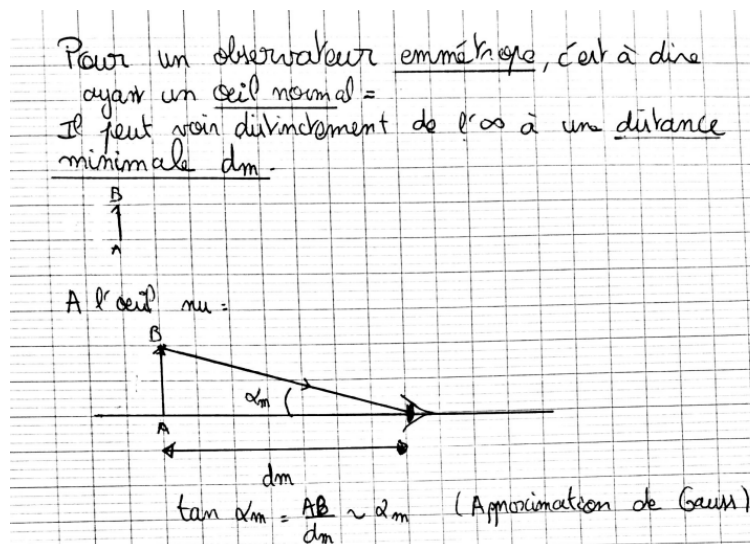 Pour un observateur emmétrope, c'est à dire
ayant un oeil normal =
Il peut voir distinctement de l'∞ à une distance
minimale dm.
B
A
A l'oeil nu :
B
αm
A
dm
tan αm = AB/dm ~ αm (Approximation de Gauss)